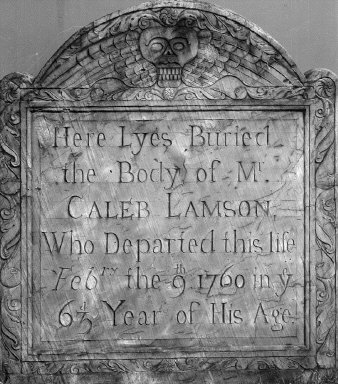 Here Lyes Buried
the Body of Mr.
CALEB LAMSON,
Who Departed this life
Febry the 9th 1760 in ye
Year of His Age